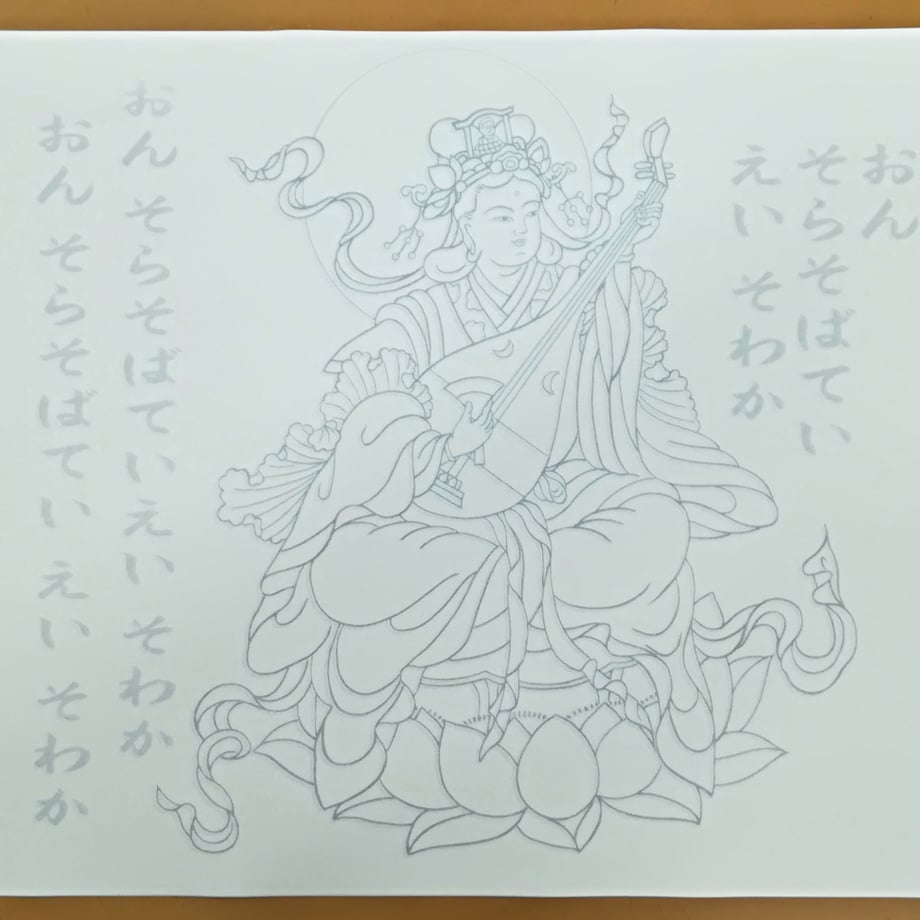 おん
そらそばてい
えい そわか
おん そらそばていえい そわか
おん そらそばてい えい そわか